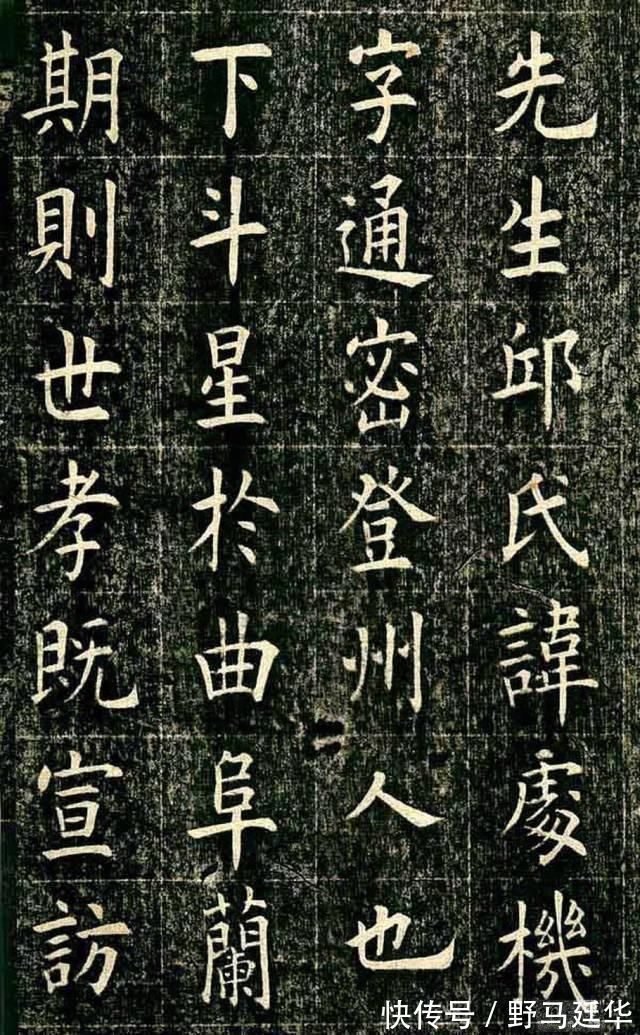 先生邱氏諱處機
字通密登州人也
下斗星於曲阜蘭
期則世孝既宣訪
快传号/野马廷华